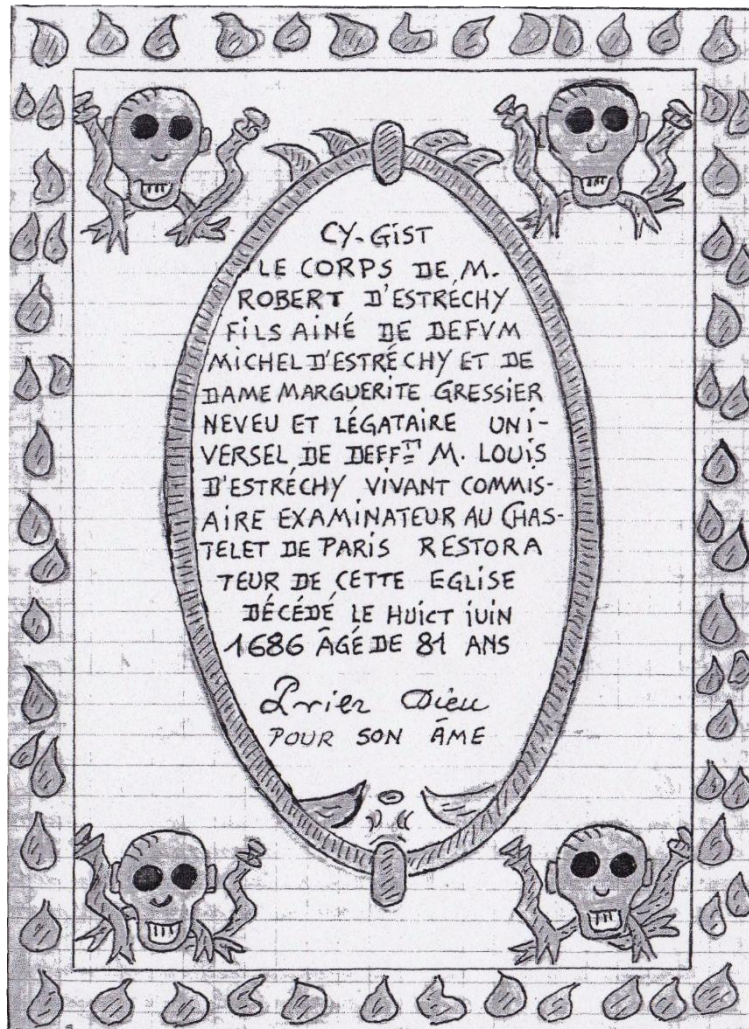 CY-GIST
LE CORPS DE M.
ROBERT D'ESTRÉCHY
FILS AINÉ DE DEFVM
MICHEL D'ESTRÉCHY ET DE
DAME MARGUERITE GRESSIER
NEVEU ET LÉGATAIRE UNI-
VERSEL DE DEFFT M. LOUIS
D'ESTRÉCHY VIVANT COMMIS-
AIRE EXAMINATEUR AU CHAS-
TELET DE PARIS RESTORA
TEUR DE CETTE EGLISE
DÉCÉDÉ LE HUICT iUIN
1686 ÂGÉ DE 81 ANS
Priez Dieu
POUR SON ÂME